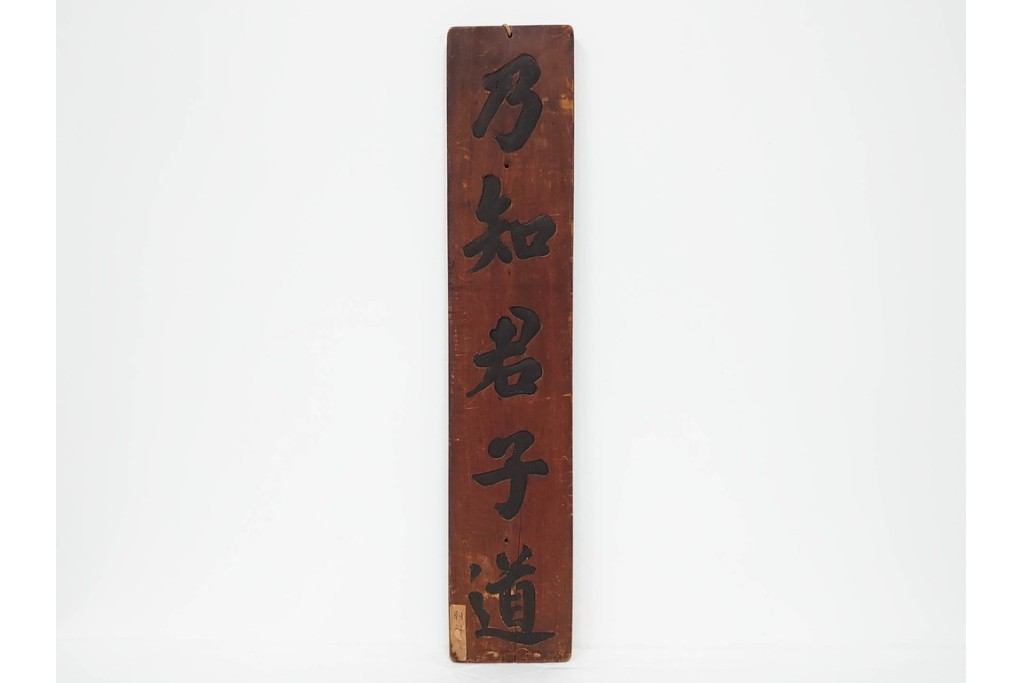 乃知君子道